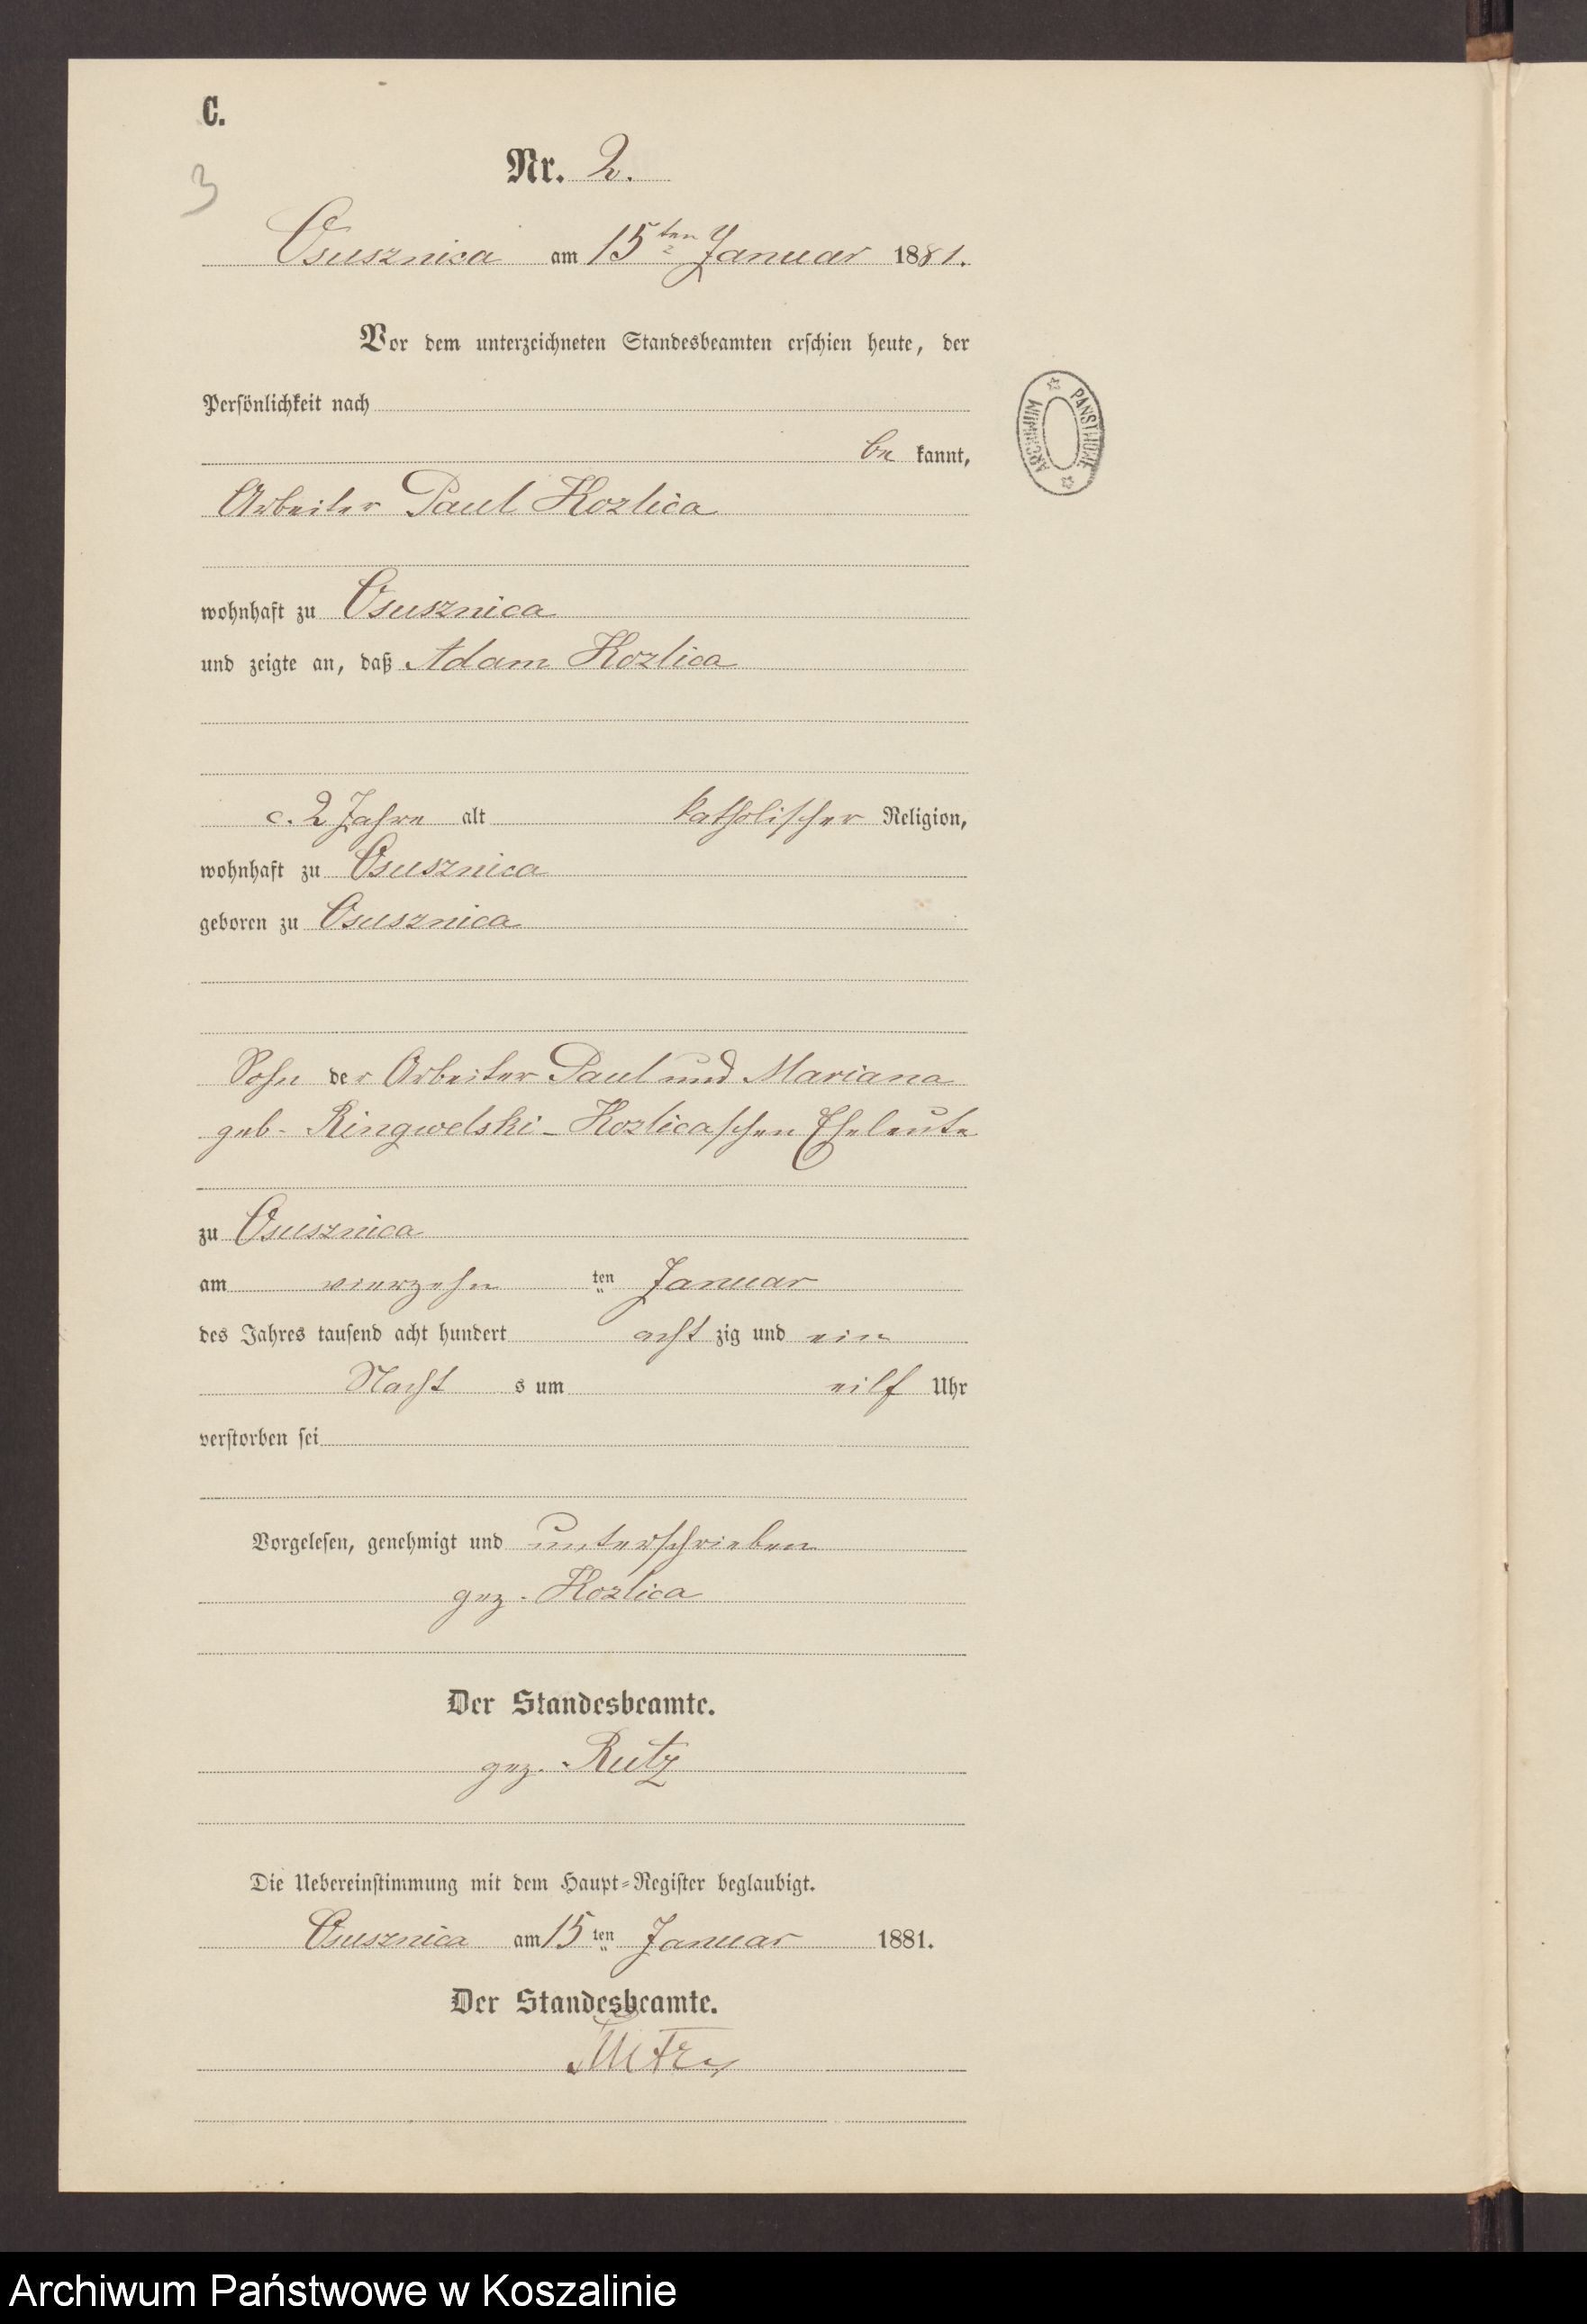 C.
3
Nr. 2.
Osusznica am 15ten Januar 1881.
Vor dem unterzeichneten Standesbeamten erschien heute, der
Persönlichkeit nach
be kannt,
Arbeiter Paul Kozlica
wohnhaft zu Osusznica
und zeigte an, daß Adam Kozlica
c. 2 Jahre alt katholischer Religion,
wohnhaft zu Osusznica
geboren zu Osusznica
Sohn der Arbeiter Paul und Mariana
geb. Ringwelski-Kozlica'schen Eheleute
zu Osusznica
am vierzehn ten Januar
des Jahres tausend acht hundert acht zig und ein
Nacht s um eilf Uhr
verstorben sei
Vorgelesen, genehmigt und unterschrieben
gez. Kozlica
Der Standesbeamte.
gez. Rutz
Die Uebereinstimmung mit dem Haupt-Register beglaubigt.
Osusznica am 15 ten Januar 1881.
Der Standesbeamte.
ARCHIWUM PAŃSTWOWE
Archiwum Państwowe w Koszalinie